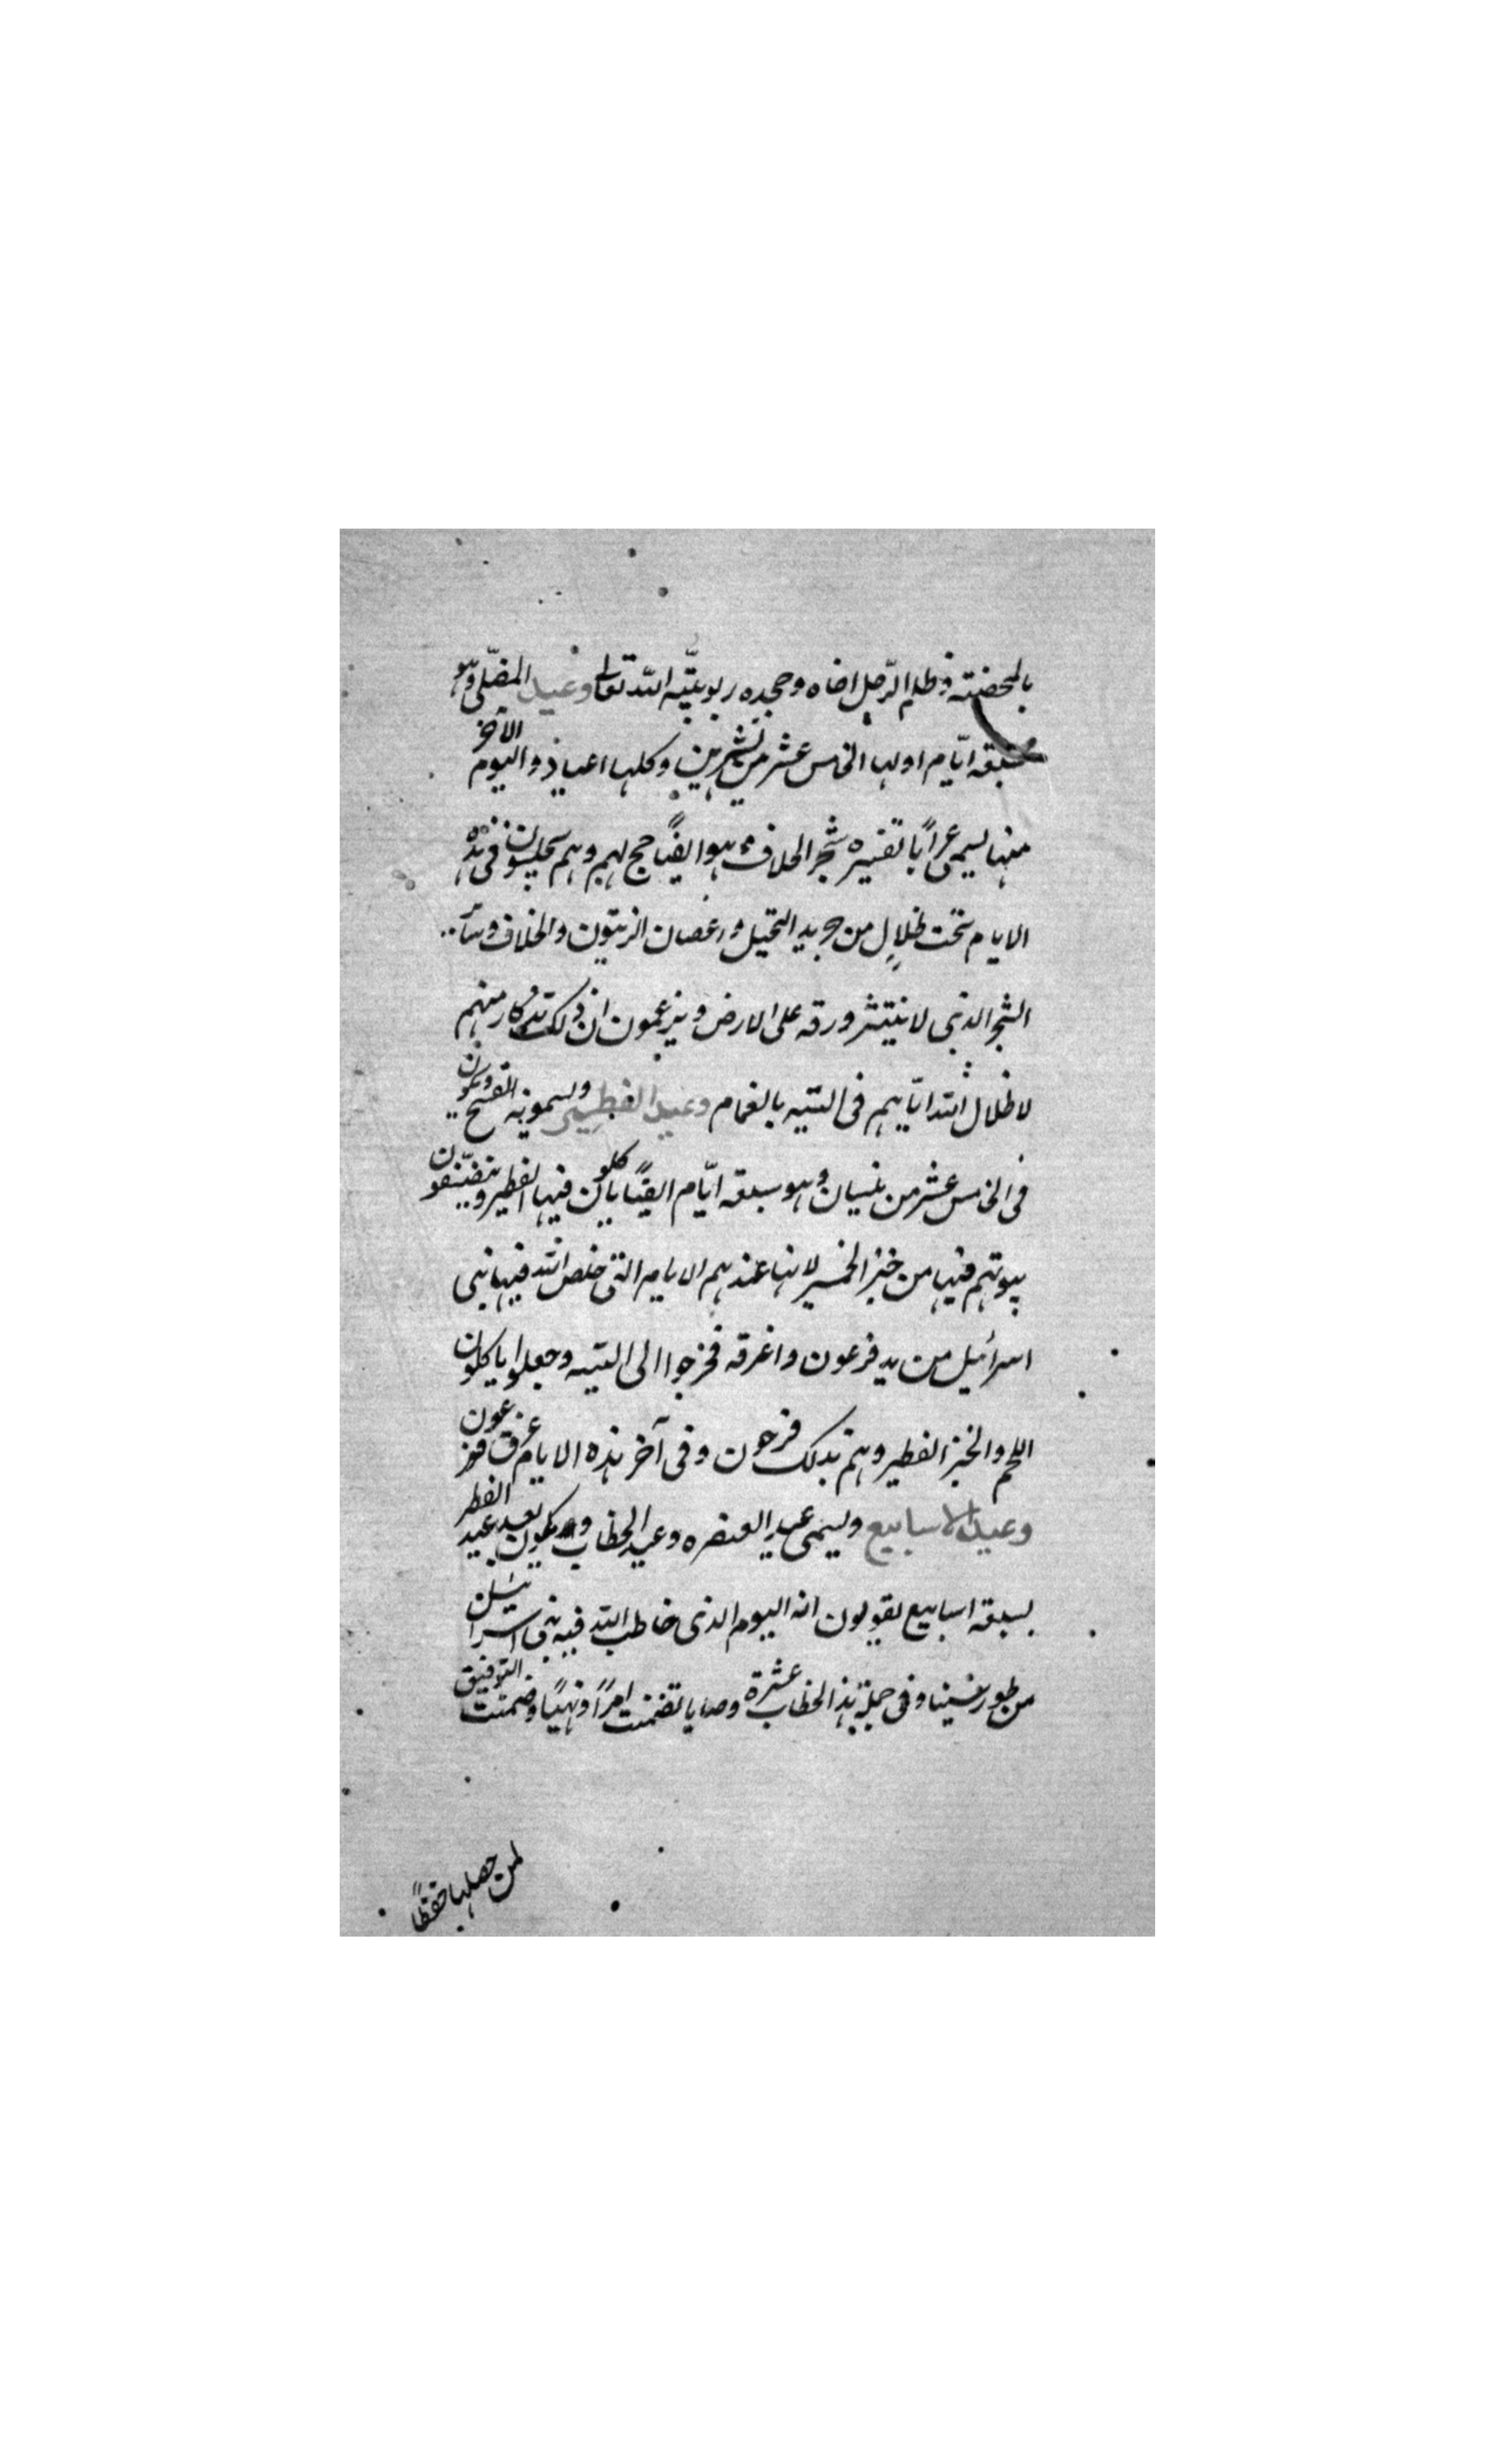 بالمحضنه وظلم الرّجل اخاه وجحده ربوبيّة الله تعالى وعيد المضلّى وهو
سبعة ايّام اولها الخامس عشر من تشرين وكلها اعياد واليوم الآخر
منها يسمى عرابًا تفسيره شجر الخلاف وهو ايضًا حج لهم وهم يجلسون فى هذه
الايام تحت ظلال من جريد النخيل واغصان الزيتون والخلاف وسائر
الشجر الذى لا ينتثر ورقه على الارض ويزعمون ان ذلك تذكار منهم
لاظلال الله ايّاهم فى التيه بالغمام وعيد الفطير ويسمونه الفسح ويكون
فى الخامس عشر من نيسان وهو سبعة ايّام ايضًا ياكلون فيها الفطير وينضّفون
بيوتهم فيها من خبز الخمير لانها عندهم الايام التى خلص الله فيها بنى
اسرائيل من يد فرعون واغرقه فخرجوا الى التيه وجعلوا ياكلون
اللحم والخبز الفطير وهم بذلك فرحون وفى آخر هذه الايام غرق فرعون
وعيد الاسابيع ويسمى عيد العنصره وعيد الخطاب ويكون بعد عيد الفطر
بسبعة اسابيع يقولون انه اليوم الذى خاطب الله فيه بنى اسرائيل
من طور سينا وفى جملة هذا الخطاب عشرة وصايا تضمنت امرًا ونهيًا وضمنت التوفيق
لمن حصلها حفظًا